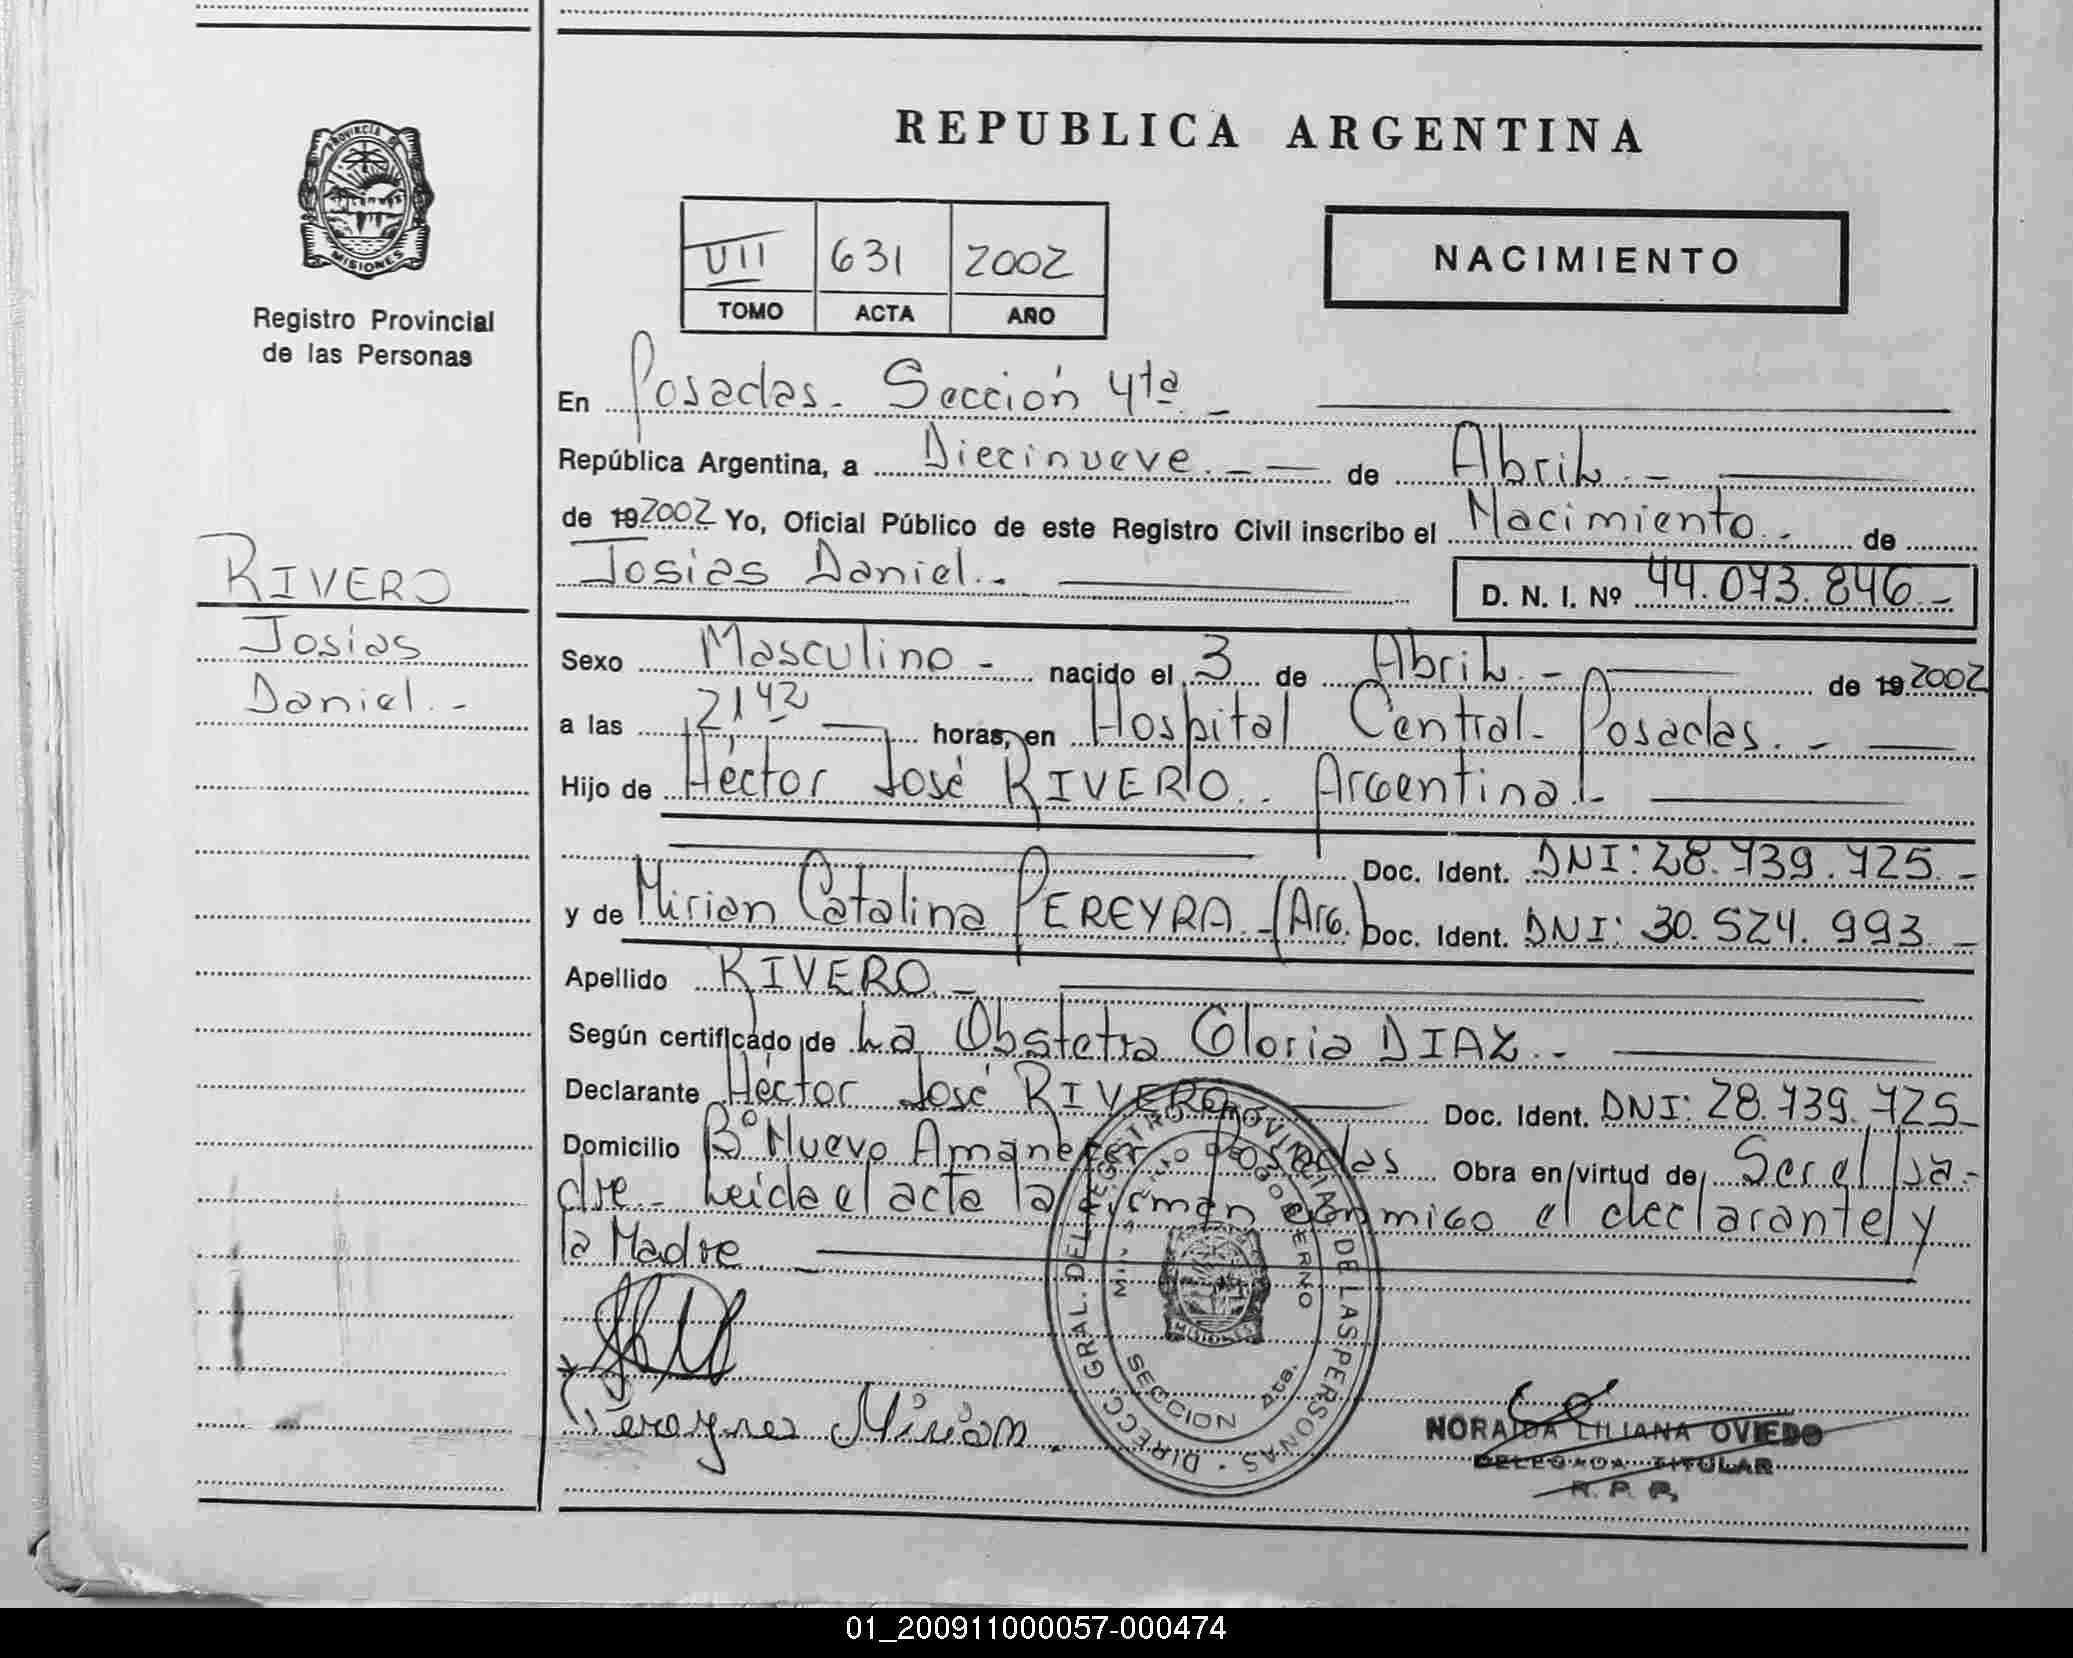 REPUBLICA ARGENTINA
PROVINCIA DE
MISIONES
Registro Provincial
de las Personas
VII 631 2002
TOMO ACTA AÑO
NACIMIENTO
RIVERO
Josías
Daniel.-
En Posadas. Sección 4ta.-
República Argentina, a Diecinueve.- de Abril.-
de 19 2002 Yo, Oficial Público de este Registro Civil inscribo el Nacimiento.- de
Josías Daniel.- D. N. I. Nº 44.073.846.-
Sexo Masculino - nacido el 3 de Abril.- de 19 2002
a las 21,42 horas, en Hospital Central- Posadas.-
Hijo de Héctor José RIVERO.. Argentina.-
Doc. Ident. DNI: 28.739.725.-
y de Mirian Catalina PEREYRA.-(Arg.) Doc. Ident. DNI: 30.524.993.-
Apellido RIVERO.-
Según certificado de La Obstetra Gloria DIAZ.-
Declarante Héctor José RIVERO Doc. Ident. DNI: 28.739.725-
Domicilio Bº Nuevo Amanecer Posadas Obra en virtud de Ser el Pa-
dre.- Leida el acta la firman conmigo el declarante y
la Madre
Pereyra Mirian.
DIRECC. GRAL. DEL REGISTRO PROVINCIAL DE LAS PERSONAS
MINISTERIO DE GOBIERNO
MISIONES
SECCION 4ta.
NORAIDA LILIANA OVIEDO
DELEGADA TITULAR
R. P. P.
01_200911000057-000474